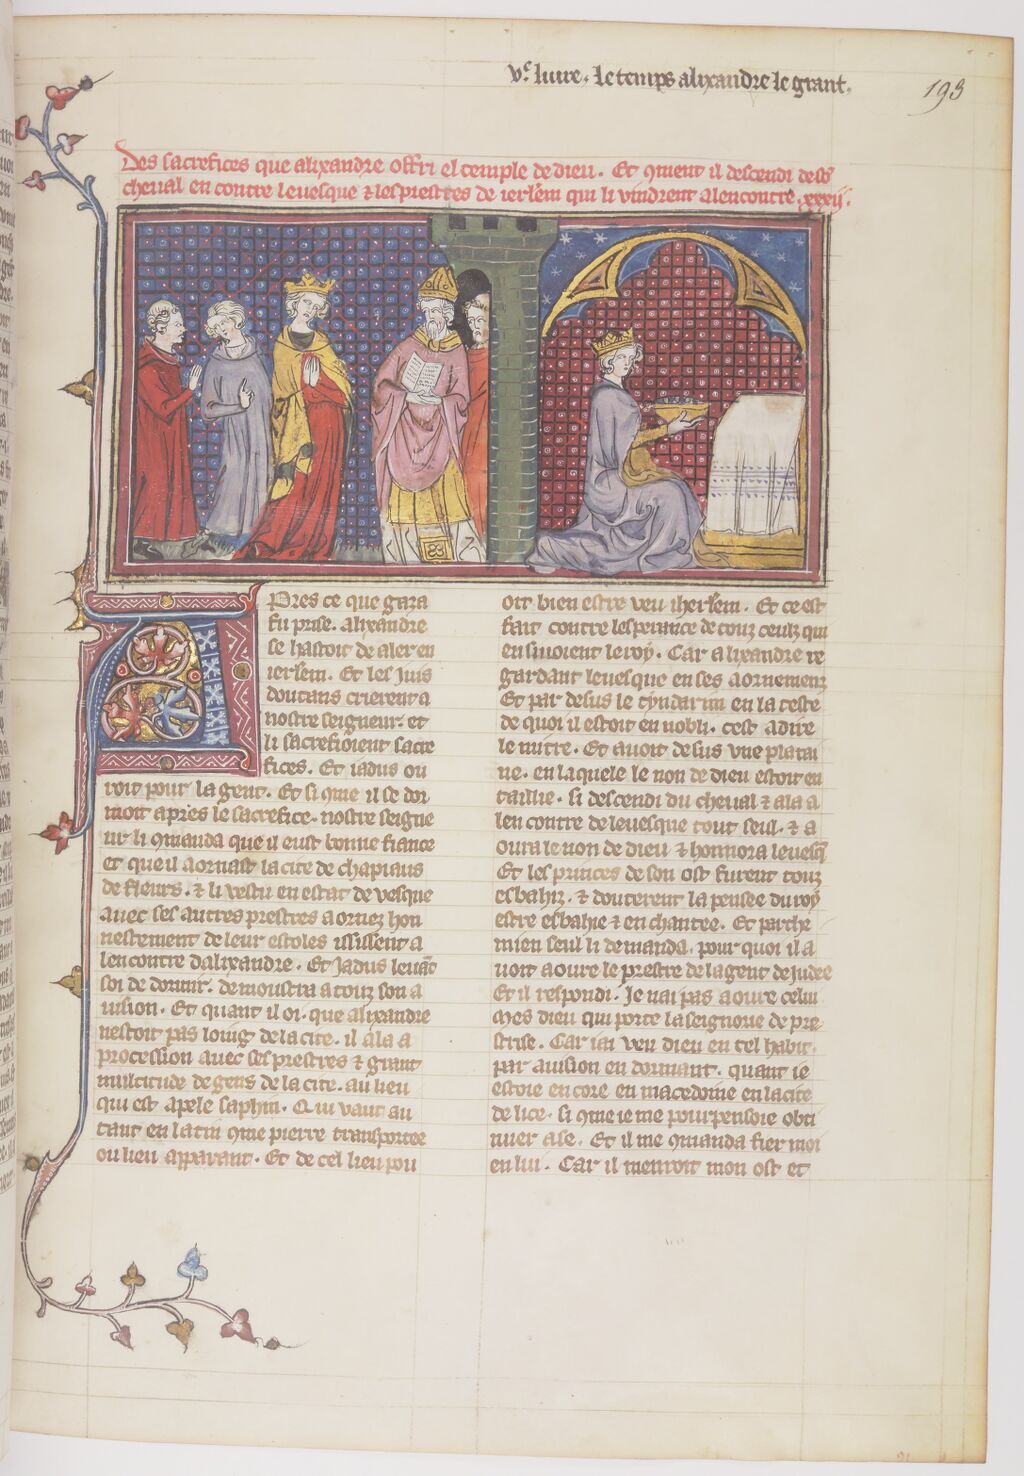 v.e liure. le temps alixandre le grant.
193
Des sacrefices que alixandre offri el temple de dieu. Et qment il descendi de sō
cheual en contre leuesque & les prestres de ierl'em qui li vindrent alencontre. xxxij.
Apres ce que gaza
fu prise. alixandre
se hastoit de aler en
ierl'em. Et les Juis
doutans crierent a
nostre seigneur. et
li sacrefioient sacre
fices. Et iadus ou
roit pour la gent. Et si qme il se dor
moit apres le sacrefice. nostre seigne
ur li qmanda que il eust bonne fiance
et que il aornast la cite de chapiaus
de fleurs. & li vestu en estat de vesque
auec ses autres prestres aornez hon
nestement de leur estoles ississent a
lencontre dalixandre. Et Jadus leuāt
soi de dormir. demoustra a touz son a
uision. Et quant il oi. que alixandre
nestoit pas loing de la cite. il ala a
procession auec ses prestres & grant
multitude de gens de la cite. au lieu
qui est apele saphin. Qui vaut au
tant en latin qme pierre transportee
ou lieu apparant. Et de cel lieu pou
oit bien estre veu iherl'em. Et ce est
fait contre lesperance de touz ceulz qui
ensiuoient le roy. Car alixandre re
gardant leuesque en ses aornemenz
Et par desus le cyndarim en la teste
de quoi il estoit en nobli. cest adire
le mitre. Et auoit desus vne platai
ne. en laquele le non de dieu estoit en
taillie. si descendi du cheual & ala a
len contre de leuesque tout seul. & a
oura le non de dieu & honnora leuesq
Et les princes de son ost furent touz
esbahiz. & douterent la pensee du roy
estre esbahie & en chantee. Et parthe
mien seul li demanda. pour quoi il a
uoit aoure le prestre de la gent de judee
Et il respondi. Je nai pas aoure celui
Mes dieu qui porte la seignorie de pre
strise. Car iai veu dieu en tel habit.
par auision en dormant. quant ie
estoie encore en macedoine en la cite
de lice. si qme ie me pourpensoie obti
nuer aise. Et il me qmanda fier moi
en lui. Car il menroit mon ost et